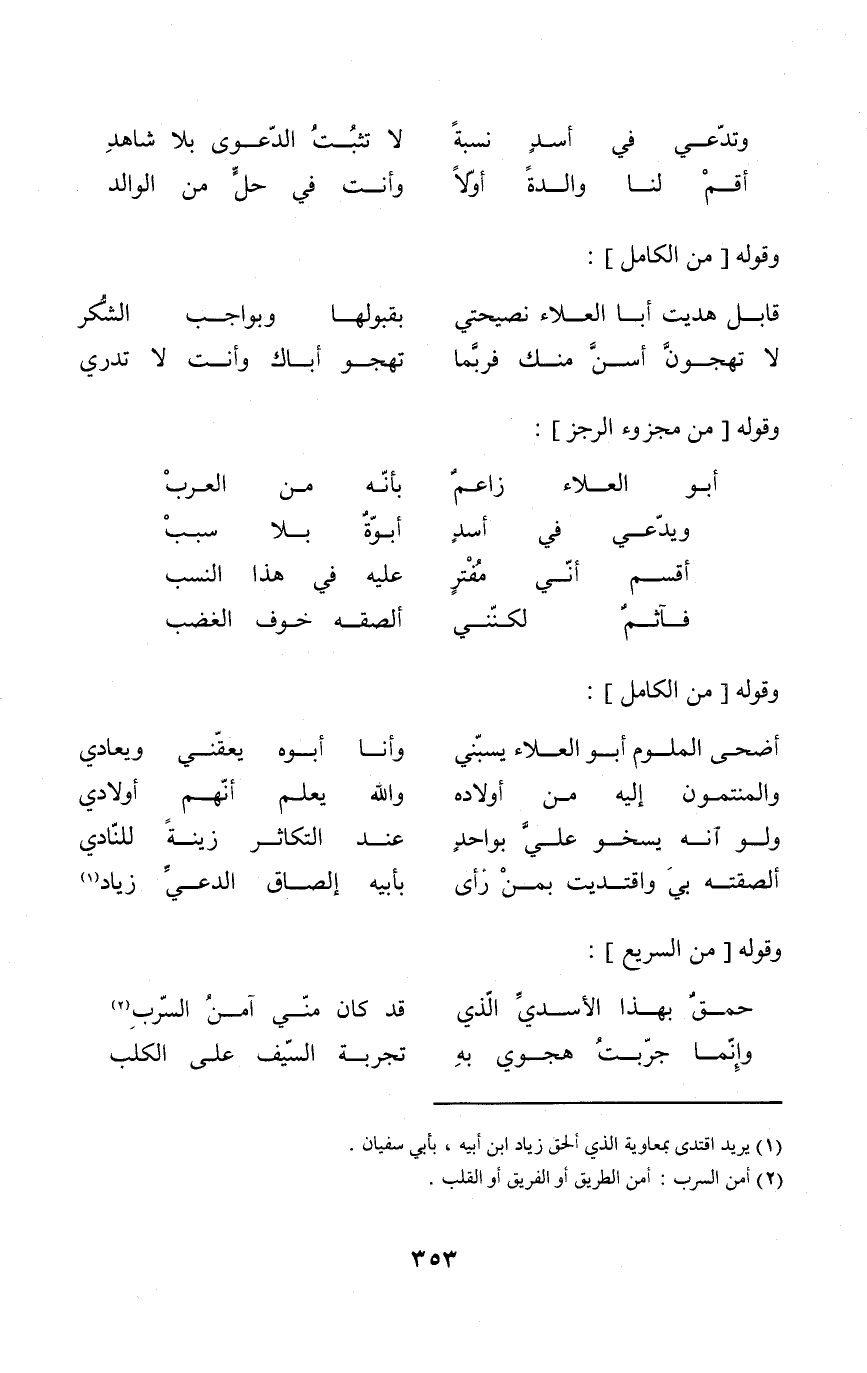 وتدّعي في أسدٍ نسبةً لا تثبُتُ الدّعوى بلا شاهدِ
أقمْ لنا والدةً أوّلاً وأنت في حلٍّ من الوالد
وقوله [ من الكامل ] :
قابل هديت أبا العلاء نصيحتي بقبولها وبواجب الشُّكر
لا تهجونَّ أسنَّ منك فربَّما تهجو أباك وأنت لا تدري
وقوله [ من مجزوء الرجز ] :
أبو العلاء زاعمٌ بأنّه من العربْ
ويدّعي في أسدٍ أبوّةٌ بلا سببْ
أقسم أنّي مُفْترٍ عليه في هذا النسب
فآثمٌ لكنّني ألصقه خوف الغضب
وقوله [ من الكامل ] :
أضحى الملوم أبو العلاء يسبّني وأنا أبوه يعقّني ويعادي
والمنتمون إليه من أولاده والله يعلم أنّهم أولادي
ولو آنه يسخو عليَّ بواحدٍ عند التكاثر زينةً للنّادي
ألصقته بيَ واقتديت بمنْ رأى بأبيه إلصاق الدعيِّ زياد(١)
وقوله [ من السريع ] :
حمقٌ بهذا الأسديِّ الّذي قد كان منّي آمنُ السّربِ(٢)
وإِنّما جرّبتُ هجوي بهِ تجربة السّيف على الكلب
(١) يريد اقتدى بمعاوية الذي ألحق زياد ابن أبيه ، بأبي سفيان .
(٢) أمن السرب : أمن الطريق أو الفريق أو القلب .
٣٥٣